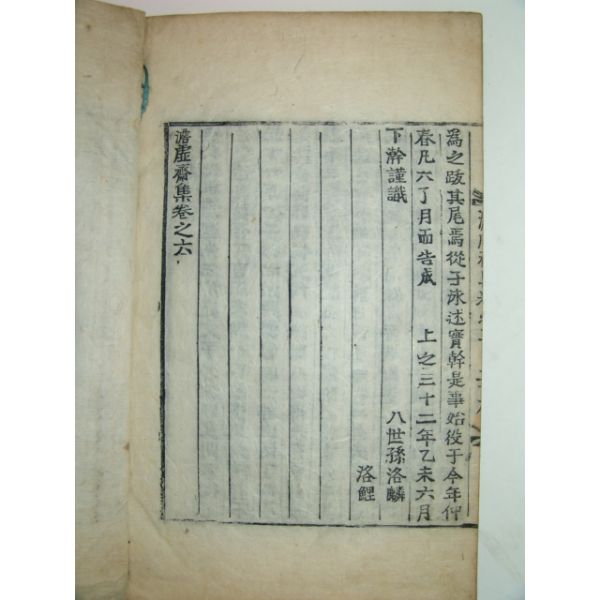 為之跋其尾焉從子泳述實幹是事始役于今年仲
春凡六丁月而告成 上之三十二年乙未六月
下澣謹識 八世孫洛麟
洛鯉
澹虛齋集卷之六